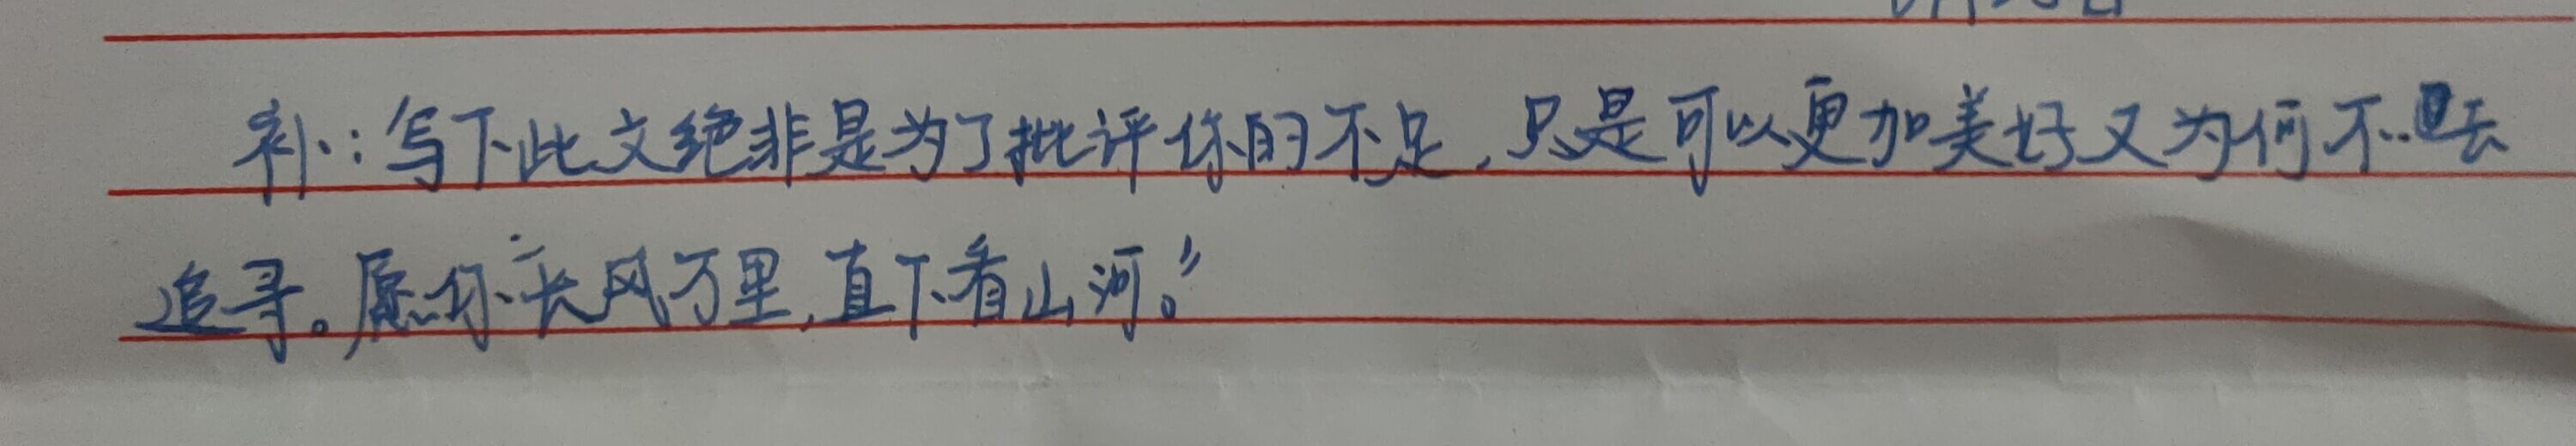 补：写下此文绝非是为了批评你的不足，只是可以更加美好又为何不去
追寻。愿你“长风万里，直下看山河。”